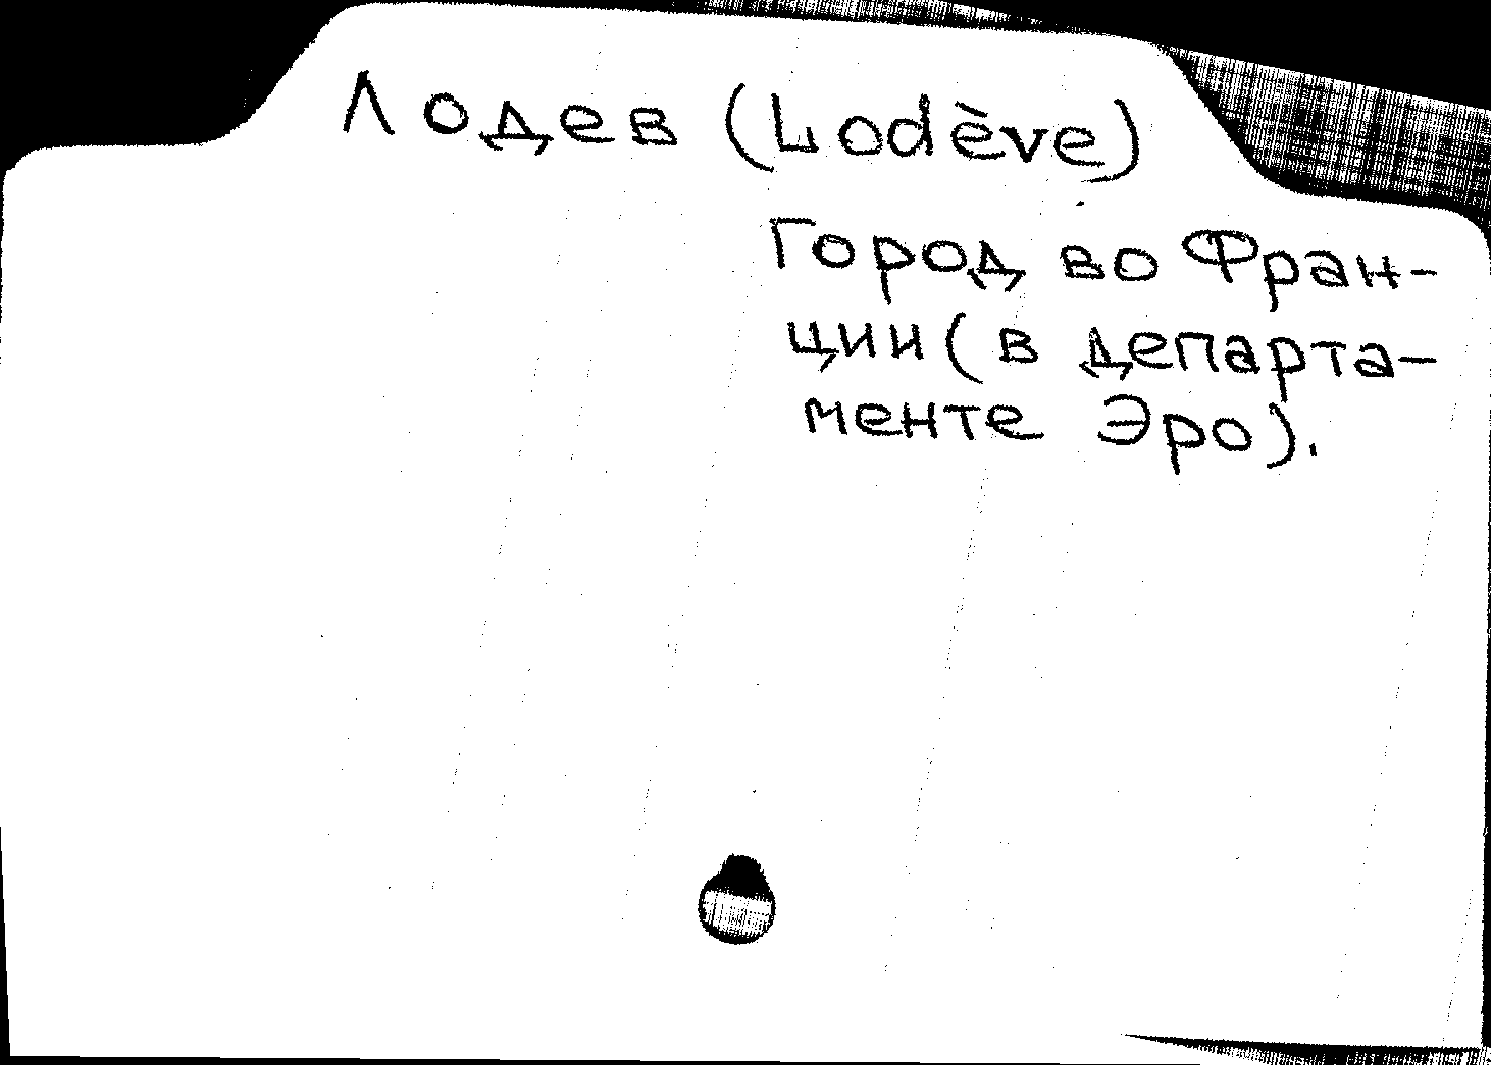 Лодев (Lodève)
Город во Фран-
ции (в департа-
менте Эро).